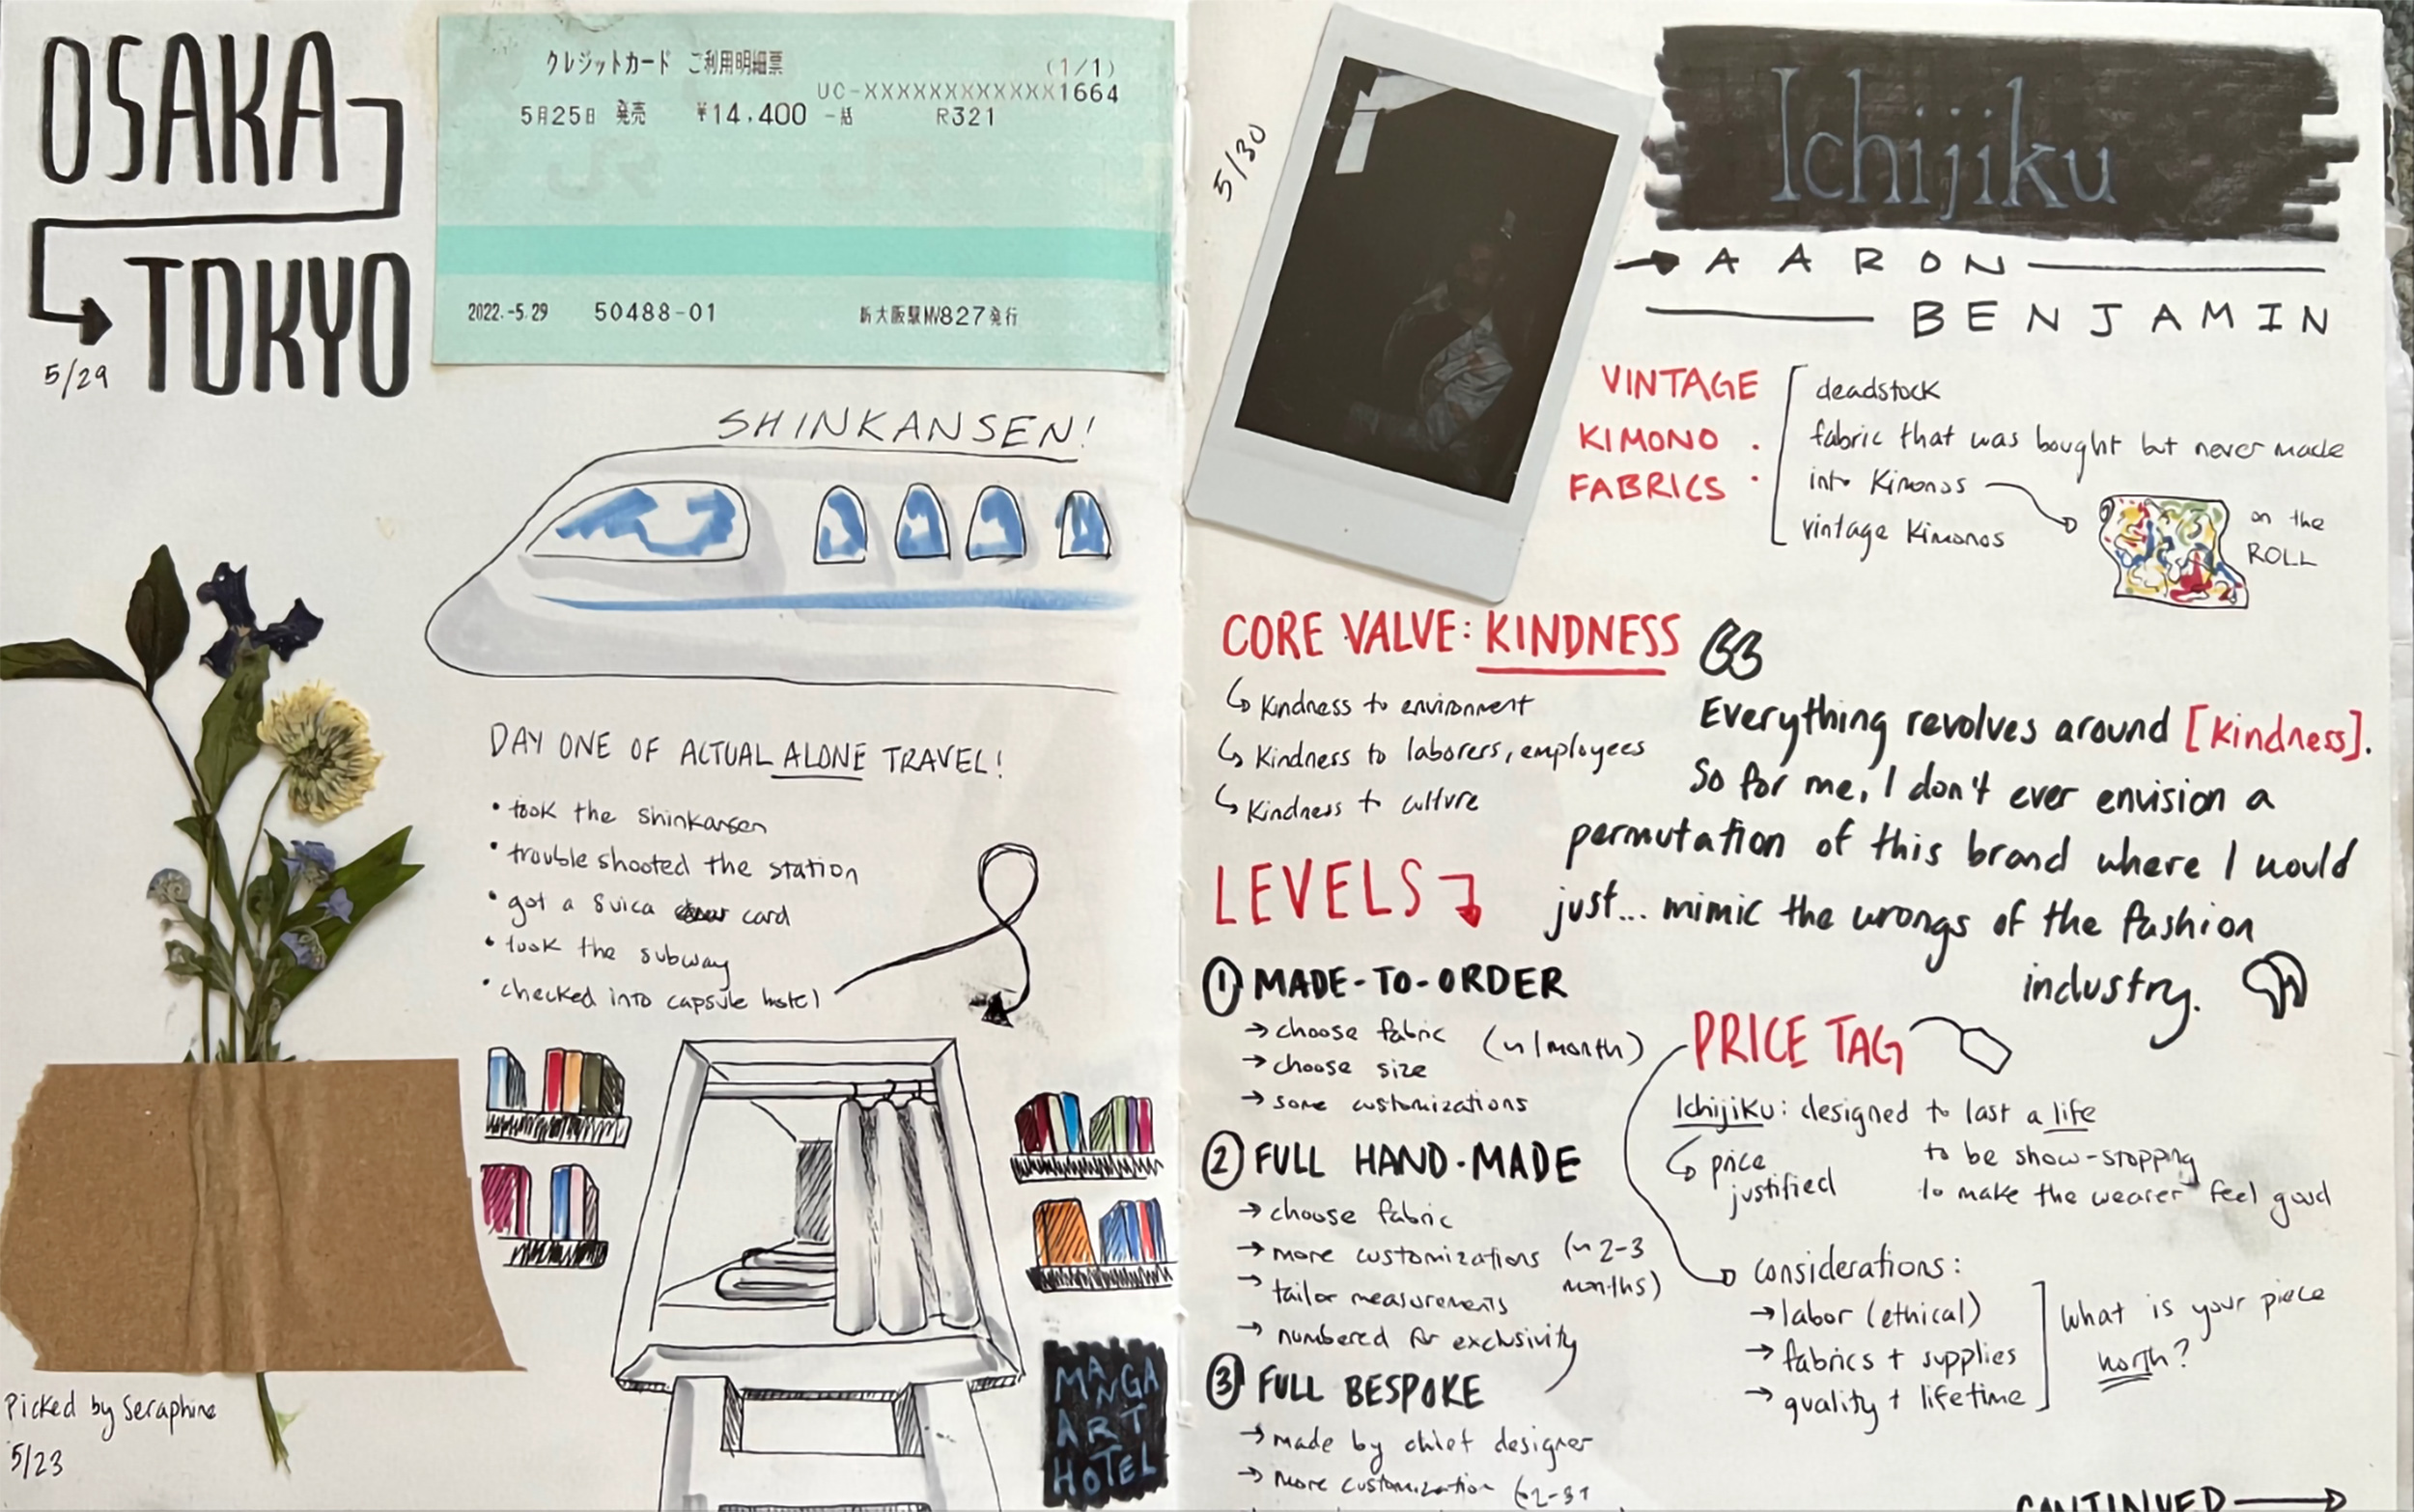 OSAKA
TOKYO
5/29
クレジットカード ご利用明細票
(1/1)
UC-XXXXXXXXXXXX1664
5月25日 発売 ¥14,400 一括 R321
2022.-5.29 50488-01 新大阪駅MV827発行
SHINKANSEN!
DAY ONE OF ACTUAL ALONE TRAVEL!
• took the shinkansen
• trouble shooted the station
• got a Suica card
• took the subway
• checked into capsule hotel
MANGA
ART
HOTEL
Picked by Seraphine
5/23
5/30
Ichijiku
→ AARON
BENJAMIN
VINTAGE
KIMONO
FABRICS
deadstock
fabric that was bought but never made
into Kimonos
vintage Kimonos
on the
ROLL
CORE VALVE: KINDNESS
Kindness to environment
Kindness to laborers, employees
Kindness to culture
Everything revolves around [kindness].
So for me, I don't ever envision a
permutation of this brand where I would
just... mimic the wrongs of the fashion
industry.
LEVELS
① MADE-TO-ORDER
→ choose fabric (~1 month)
→ choose size
→ some customizations
② FULL HAND-MADE
→ choose fabric
→ more customizations (~2-3
months)
→ tailor measurements
→ numbered for exclusivity
③ FULL BESPOKE
→ made by chief designer
→ more customization
PRICE TAG
Ichijiku: designed to last a life
to be show-stopping
to make the wearer feel good
price
justified
considerations:
→ labor (ethical)
→ fabrics + supplies
→ quality + lifetime
What is your piece
worth?
CONTINUED →